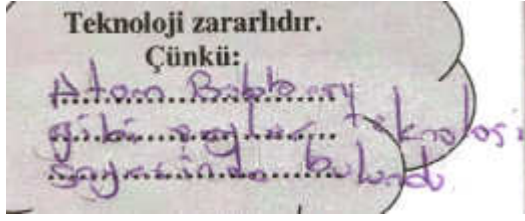 Teknoloji zararlıdır.
Çünkü:
Atom Bombası
gibi şeyler teknoloji
sayesinde bulundu